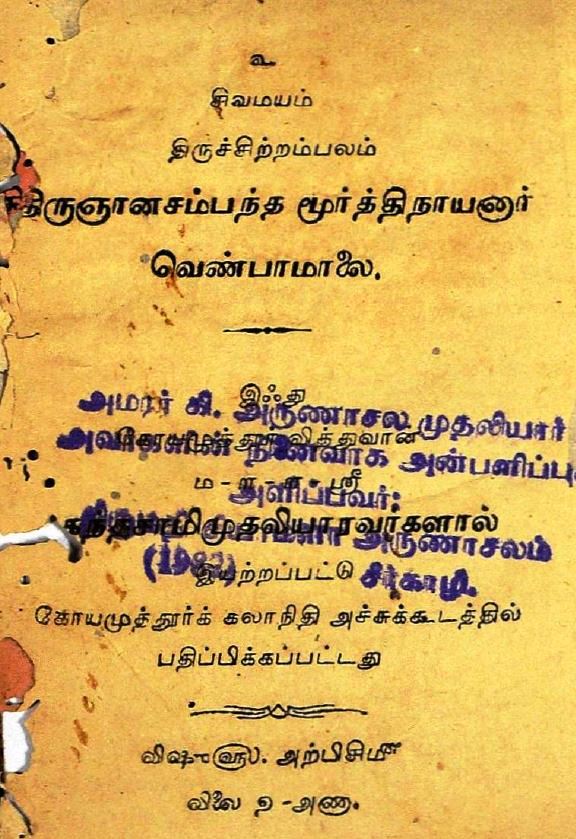 உ
சிவமயம்
திருச்சிற்றம்பலம்
திருஞானசம்பந்த மூர்த்திநாயனார்
வெண்பாமாலை.
இஃது
அமரர் கி. அருணாசல முதலியார்
அவர்களின் நினைவாக அன்பளிப்பு
வித்துவான்
ம-௱-௱-ஸ்ரீ
அளிப்பவர்:
கந்தசாமிமுதலியாரவர்களால்
அருணாசலம்
இயற்றப்பட்டு
சீர்காழி.
கோயமுத்தூர்க் கலாநிதி அச்சுக்கூடத்தில்
பதிப்பிக்கப்பட்டது
விஷு௵. அற்பிசி௴
விலை ௨-அணா.